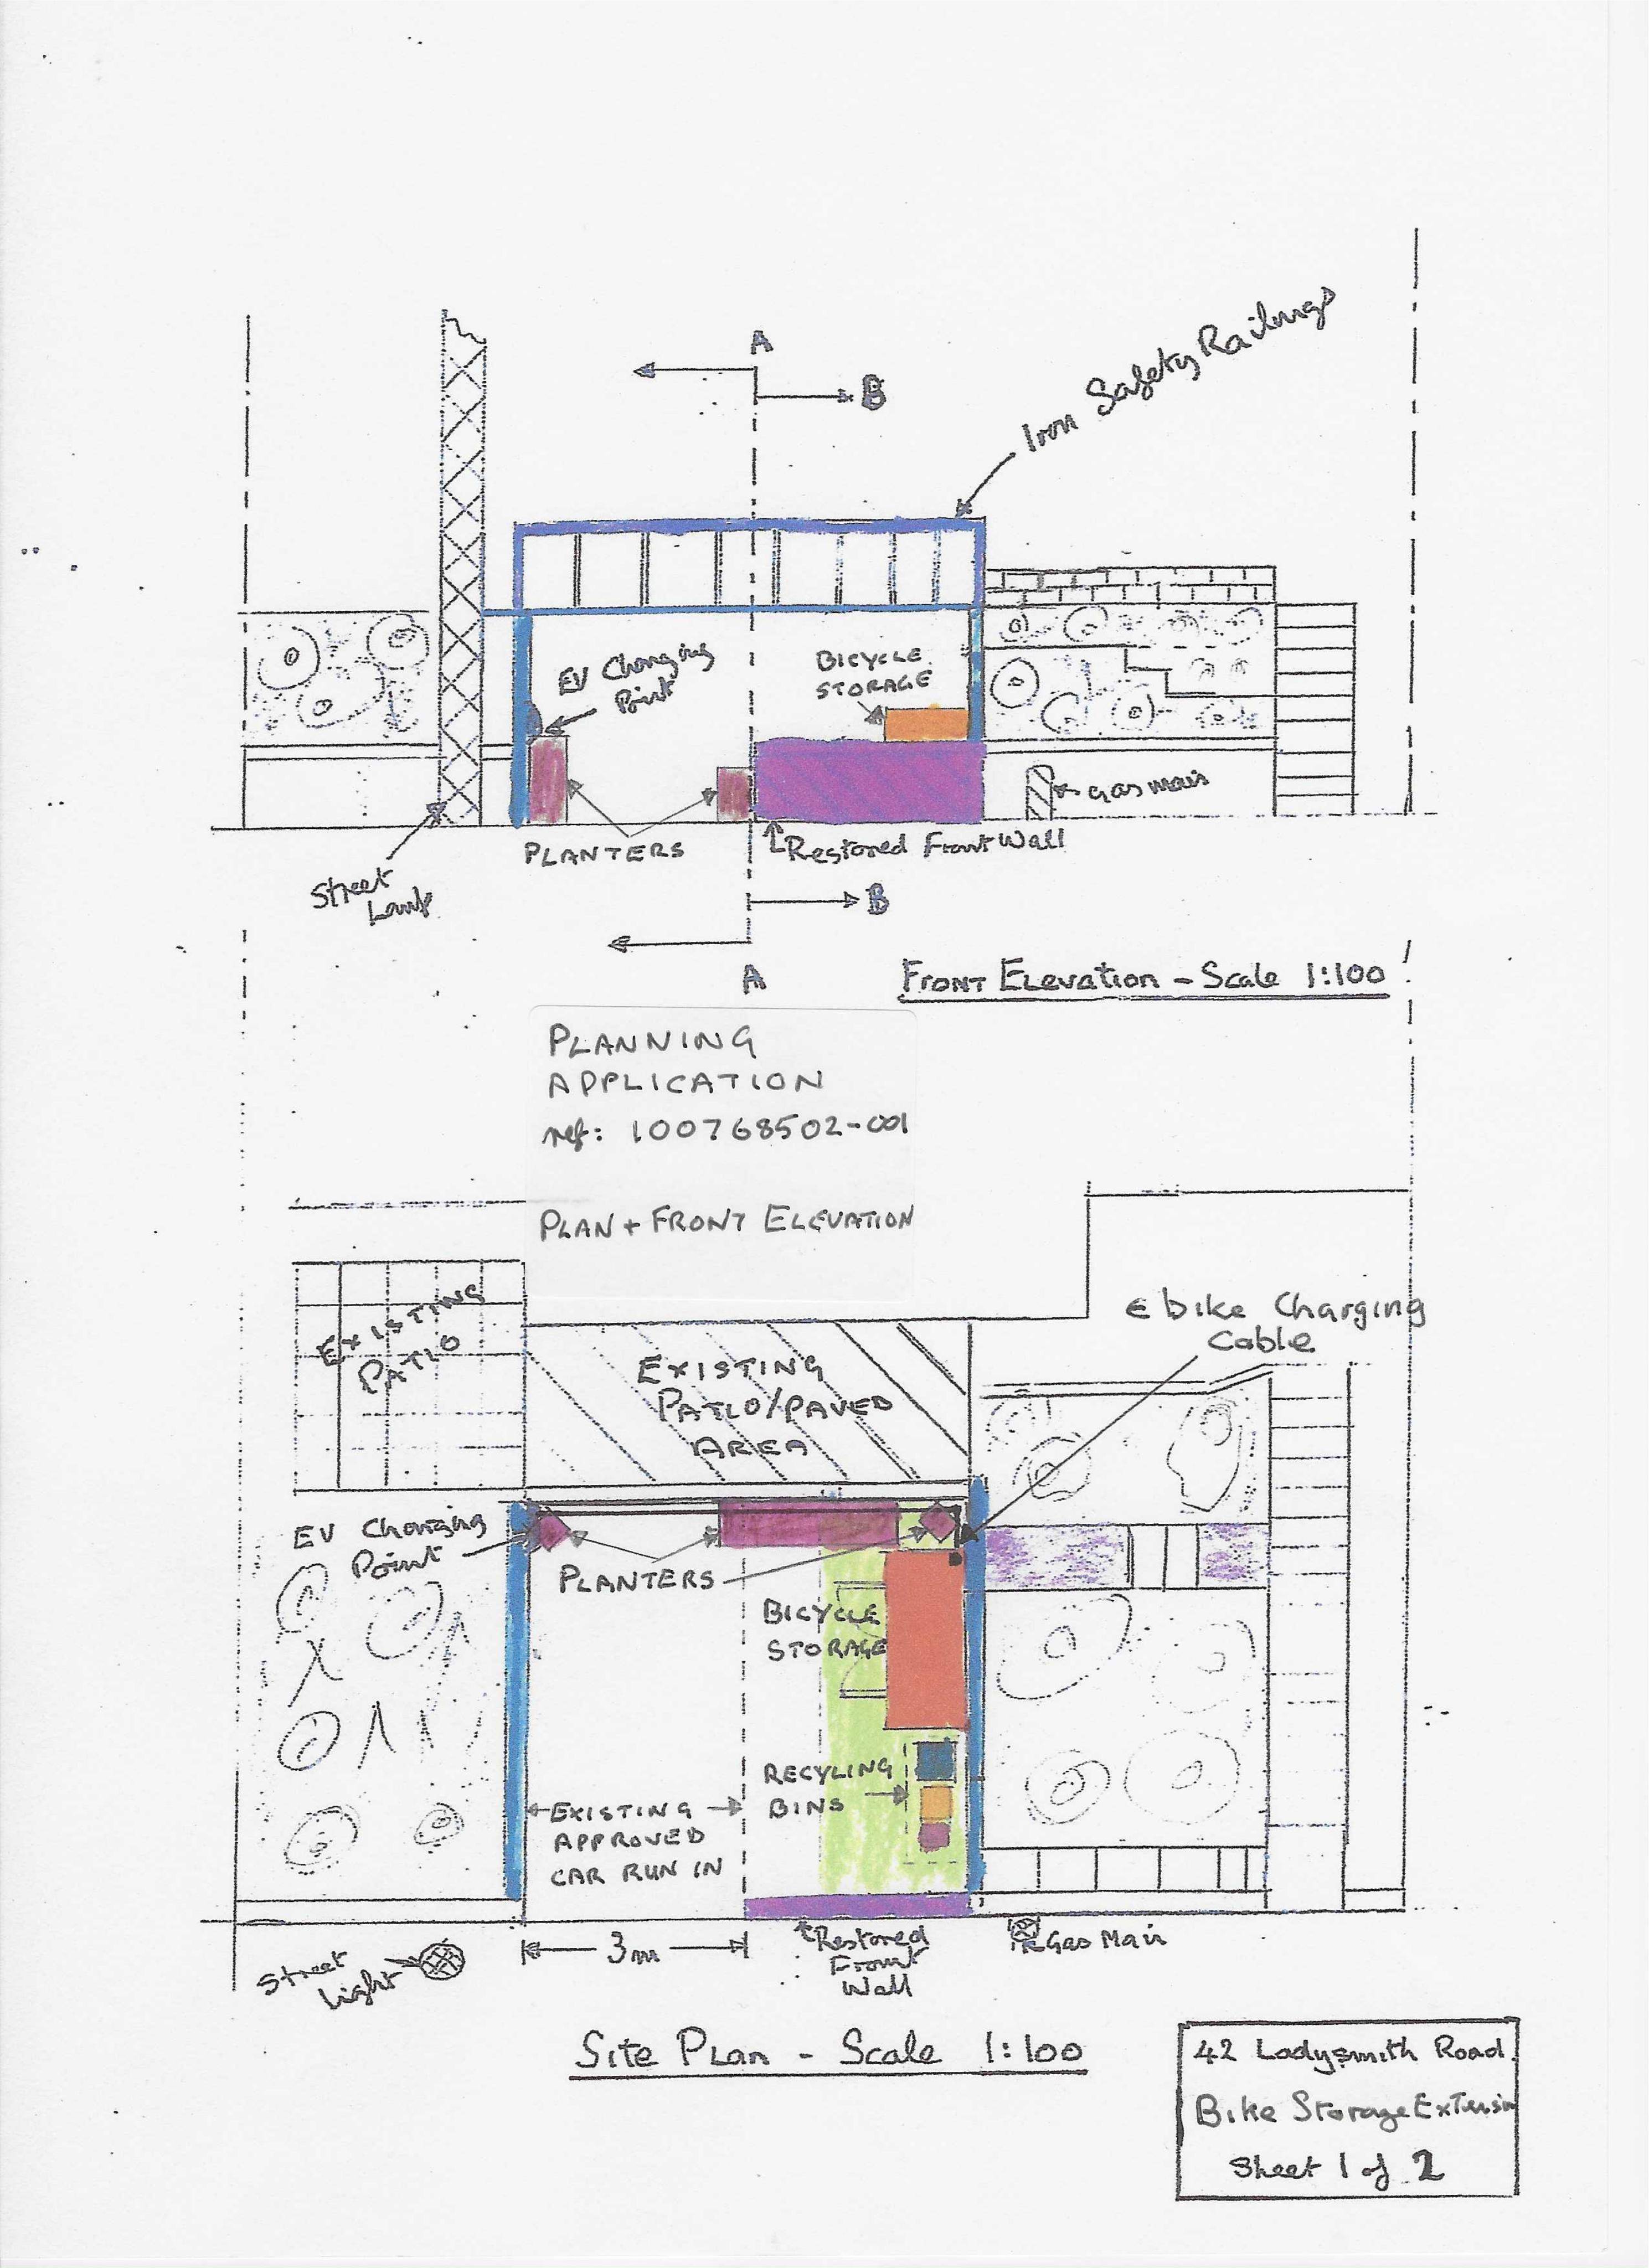 A
B
Iron Safety Railings
EV Charging
Point
BICYCLE
STORAGE
Gas main
PLANTERS
Restored Front Wall
Street
Lamp
B
A
FRONT ELEVATION - Scale 1:100
PLANNING
APPLICATION
ref: 100768502-001
PLAN + FRONT ELEVATION
EXISTING
PATIO
EXISTING
PATIO/PAVED
AREA
e bike Charging
Cable
EV Charging
Point
PLANTERS
BICYCLE
STORAGE
RECYLING
BINS
EXISTING
APPROVED
CAR RUN IN
3m
Restored
Front
Wall
Gas Main
Street
Light
SITE PLAN - Scale 1:100
42 Ladysmith Road.
Bike Storage Extension
Sheet 1 of 2